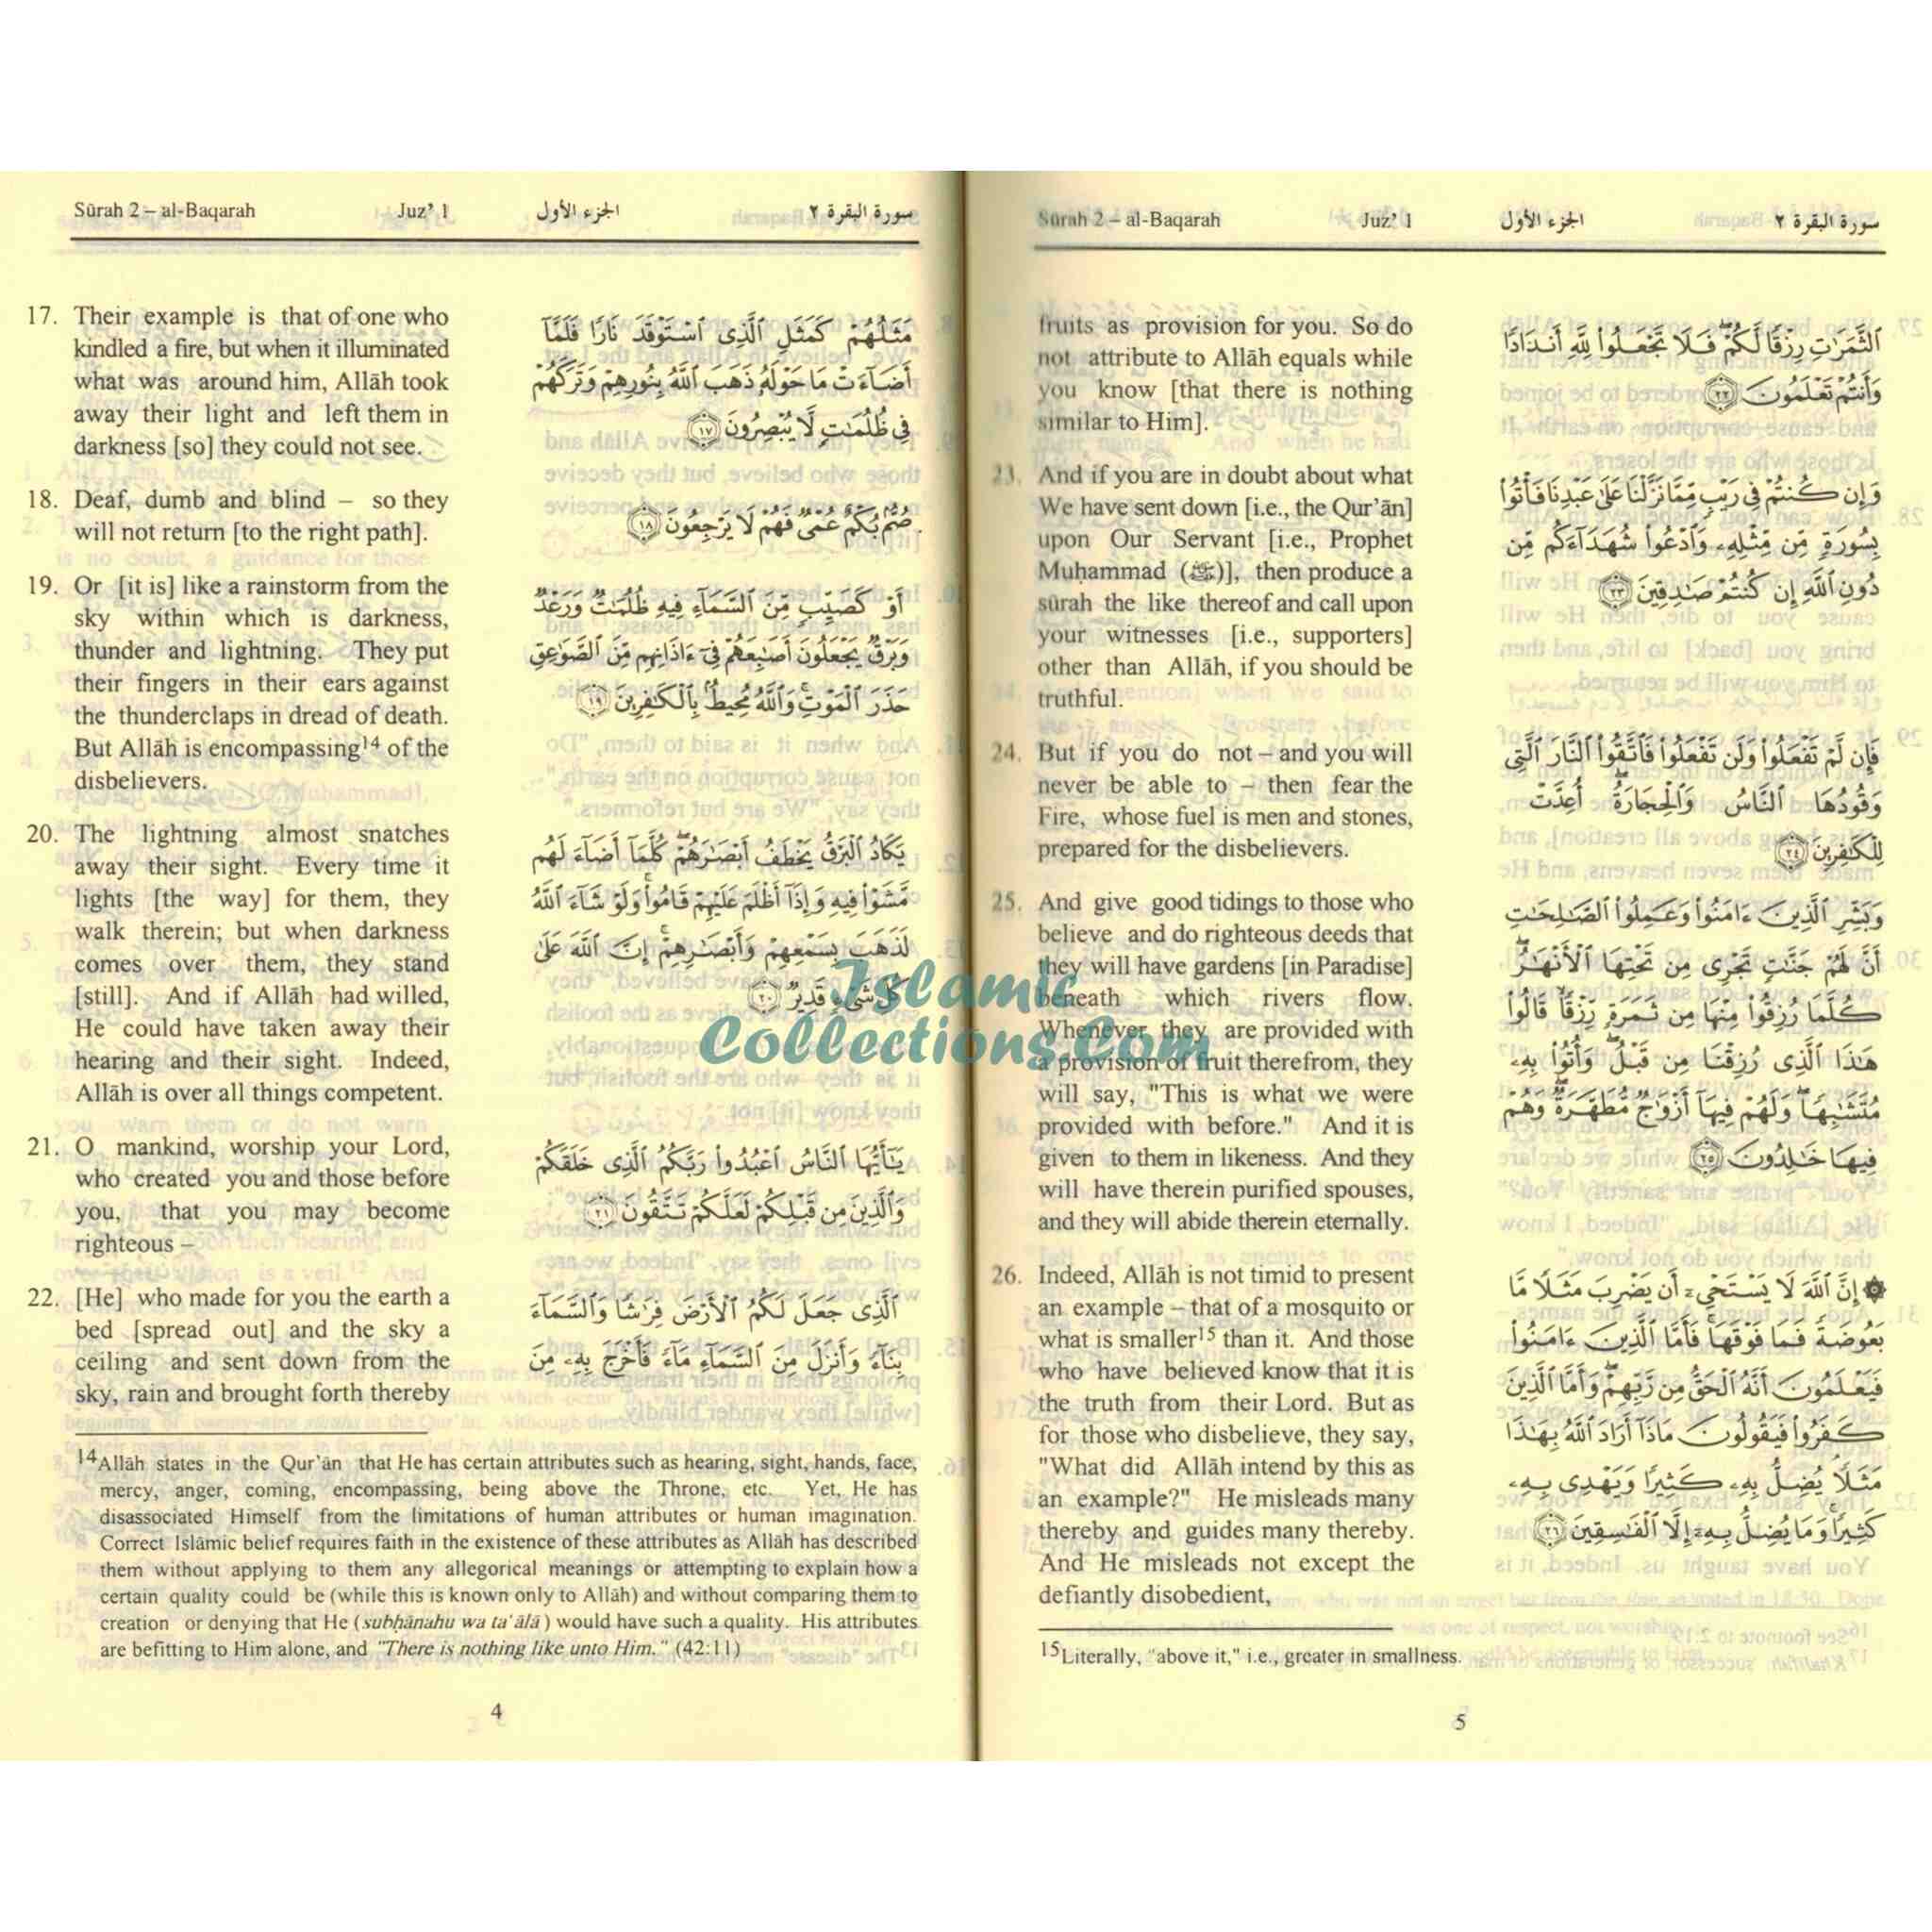 Sūrah 2 – al-Baqarah Juz' 1 الجزء الأول سورة البقرة ٢
17. Their example is that of one who
kindled a fire, but when it illuminated
what was around him, Allāh took
away their light and left them in
darkness [so] they could not see.
18. Deaf, dumb and blind – so they
will not return [to the right path].
19. Or [it is] like a rainstorm from the
sky within which is darkness,
thunder and lightning. They put
their fingers in their ears against
the thunderclaps in dread of death.
But Allāh is encompassing14 of the
disbelievers.
20. The lightning almost snatches
away their sight. Every time it
lights [the way] for them, they
walk therein; but when darkness
comes over them, they stand
[still]. And if Allāh had willed,
He could have taken away their
hearing and their sight. Indeed,
Allāh is over all things competent.
21. O mankind, worship your Lord,
who created you and those before
you, that you may become
righteous –
22. [He] who made for you the earth a
bed [spread out] and the sky a
ceiling and sent down from the
sky, rain and brought forth thereby
مَثَلُهُمْ كَمَثَلِ ٱلَّذِى ٱسْتَوْقَدَ نَارًا فَلَمَّآ
أَضَآءَتْ مَا حَوْلَهُۥ ذَهَبَ ٱللَّهُ بِنُورِهِمْ وَتَرَكَهُمْ
فِى ظُلُمَٰتٍ لَّا يُبْصِرُونَ ١٧
صُمٌّۢ بُكْمٌ عُمْىٌ فَهُمْ لَا يَرْجِعُونَ ١٨
أَوْ كَصَيِّبٍ مِّنَ ٱلسَّمَآءِ فِيهِ ظُلُمَٰتٌ وَرَعْدٌ
وَبَرْقٌ يَجْعَلُونَ أَصَٰبِعَهُمْ فِىٓ ءَاذَانِهِم مِّنَ ٱلصَّوَٰعِقِ
حَذَرَ ٱلْمَوْتِ ۚ وَٱللَّهُ مُحِيطٌۢ بِٱلْكَٰفِرِينَ ١٩
يَكَادُ ٱلْبَرْقُ يَخْطَفُ أَبْصَٰرَهُمْ ۖ كُلَّمَآ أَضَآءَ لَهُم
مَّشَوْا۟ فِيهِ وَإِذَآ أَظْلَمَ عَلَيْهِمْ قَامُوا۟ ۚ وَلَوْ شَآءَ ٱللَّهُ
لَذَهَبَ بِسَمْعِهِمْ وَأَبْصَٰرِهِمْ ۚ إِنَّ ٱللَّهَ عَلَىٰ
كُلِّ شَىْءٍ قَدِيرٌ ٢٠
يَٰٓأَيُّهَا ٱلنَّاسُ ٱعْبُدُوا۟ رَبَّكُمُ ٱلَّذِى خَلَقَكُمْ
وَٱلَّذِينَ مِن قَبْلِكُمْ لَعَلَّكُمْ تَتَّقُونَ ٢١
ٱلَّذِى جَعَلَ لَكُمُ ٱلْأَرْضَ فِرَٰشًا وَٱلسَّمَآءَ
بِنَآءً وَأَنزَلَ مِنَ ٱلسَّمَآءِ مَآءً فَأَخْرَجَ بِهِۦ مِنَ
14Allāh states in the Qur'ān that He has certain attributes such as hearing, sight, hands, face,
mercy, anger, coming, encompassing, being above the Throne, etc. Yet, He has
disassociated Himself from the limitations of human attributes or human imagination.
Correct Islāmic belief requires faith in the existence of these attributes as Allāh has described
them without applying to them any allegorical meanings or attempting to explain how a
certain quality could be (while this is known only to Allāh) and without comparing them to
creation or denying that He (subḥānahu wa ta'ālā) would have such a quality. His attributes
are befitting to Him alone, and "There is nothing like unto Him." (42:11)
4
Sūrah 2 – al-Baqarah Juz' 1 الجزء الأول سورة البقرة ٢
fruits as provision for you. So do
not attribute to Allāh equals while
you know [that there is nothing
similar to Him].
23. And if you are in doubt about what
We have sent down [i.e., the Qur'ān]
upon Our Servant [i.e., Prophet
Muḥammad (ﷺ)], then produce a
sūrah the like thereof and call upon
your witnesses [i.e., supporters]
other than Allāh, if you should be
truthful.
24. But if you do not – and you will
never be able to – then fear the
Fire, whose fuel is men and stones,
prepared for the disbelievers.
25. And give good tidings to those who
believe and do righteous deeds that
they will have gardens [in Paradise]
beneath which rivers flow.
Whenever they are provided with
a provision of fruit therefrom, they
will say, "This is what we were
provided with before." And it is
given to them in likeness. And they
will have therein purified spouses,
and they will abide therein eternally.
26. Indeed, Allāh is not timid to present
an example – that of a mosquito or
what is smaller15 than it. And those
who have believed know that it is
the truth from their Lord. But as
for those who disbelieve, they say,
"What did Allāh intend by this as
an example?" He misleads many
thereby and guides many thereby.
And He misleads not except the
defiantly disobedient,
ٱلثَّمَرَٰتِ رِزْقًا لَّكُمْ ۖ فَلَا تَجْعَلُوا۟ لِلَّهِ أَندَادًا
وَأَنتُمْ تَعْلَمُونَ ٢٢
وَإِن كُنتُمْ فِى رَيْبٍ مِّمَّا نَزَّلْنَا عَلَىٰ عَبْدِنَا فَأْتُوا۟
بِسُورَةٍ مِّن مِّثْلِهِۦ وَٱدْعُوا۟ شُهَدَآءَكُم مِّن
دُونِ ٱللَّهِ إِن كُنتُمْ صَٰدِقِينَ ٢٣
فَإِن لَّمْ تَفْعَلُوا۟ وَلَن تَفْعَلُوا۟ فَٱتَّقُوا۟ ٱلنَّارَ ٱلَّتِى
وَقُودُهَا ٱلنَّاسُ وَٱلْحِجَارَةُ ۖ أُعِدَّتْ
لِلْكَٰفِرِينَ ٢٤
وَبَشِّرِ ٱلَّذِينَ ءَامَنُوا۟ وَعَمِلُوا۟ ٱلصَّٰلِحَٰتِ
أَنَّ لَهُمْ جَنَّٰتٍ تَجْرِى مِن تَحْتِهَا ٱلْأَنْهَٰرُ ۖ
كُلَّمَا رُزِقُوا۟ مِنْهَا مِن ثَمَرَةٍ رِّزْقًا ۙ قَالُوا۟
هَٰذَا ٱلَّذِى رُزِقْنَا مِن قَبْلُ ۖ وَأُتُوا۟ بِهِۦ
مُتَشَٰبِهًا ۖ وَلَهُمْ فِيهَآ أَزْوَٰجٌ مُّطَهَّرَةٌ ۖ وَهُمْ
فِيهَا خَٰلِدُونَ ٢٥
۞ إِنَّ ٱللَّهَ لَا يَسْتَحْىِۦٓ أَن يَضْرِبَ مَثَلًا مَّا
بَعُوضَةً فَمَا فَوْقَهَا ۚ فَأَمَّا ٱلَّذِينَ ءَامَنُوا۟
فَيَعْلَمُونَ أَنَّهُ ٱلْحَقُّ مِن رَّبِّهِمْ ۖ وَأَمَّا ٱلَّذِينَ
كَفَرُوا۟ فَيَقُولُونَ مَاذَآ أَرَادَ ٱللَّهُ بِهَٰذَا
مَثَلًا ۘ يُضِلُّ بِهِۦ كَثِيرًا وَيَهْدِى بِهِۦ
كَثِيرًا ۚ وَمَا يُضِلُّ بِهِۦٓ إِلَّا ٱلْفَٰسِقِينَ ٢٦
15Literally, "above it," i.e., greater in smallness.
5
Islamic
Collections.Com